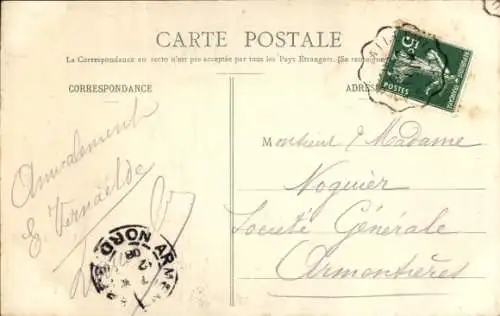 CARTE POSTALE
La Correspondance au recto n'est pas acceptée par tous les Pays Etrangers. (Se renseigner
CORRESPONDANCE
ADRES
5
POSTES
Amicalement
E. Vernaelde
Monsieur & Madame
Noguier
Société Générale
Armentières
ARMEN
NORD